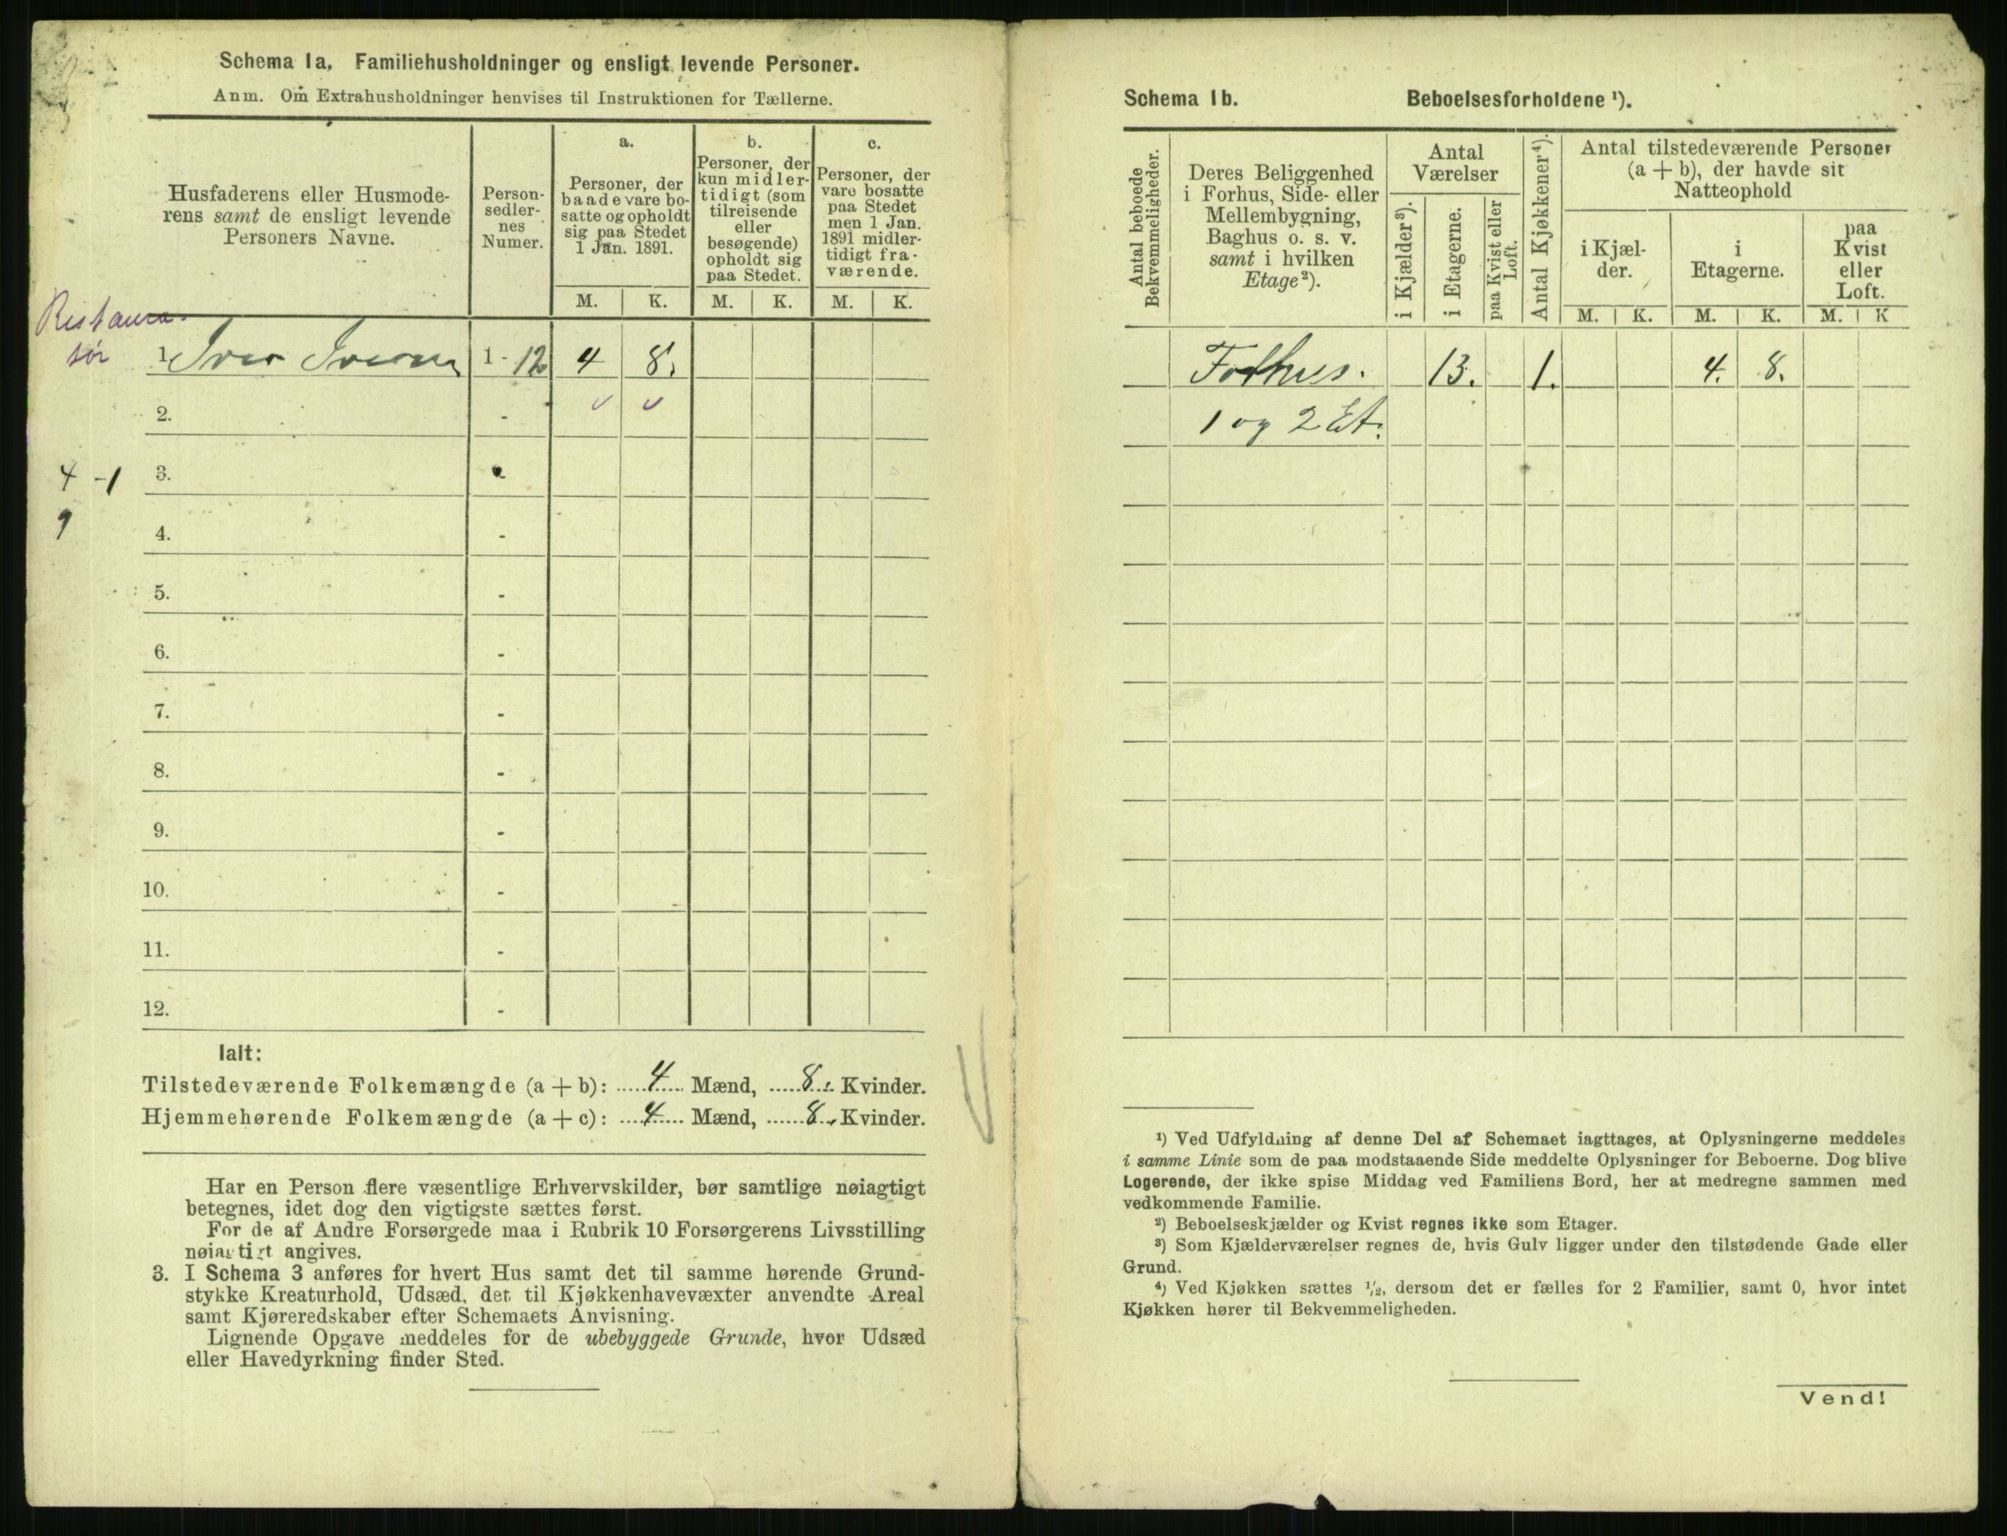 Schema 1a. Familiehusholdninger og ensligt levende Personer.
Anm. Om Extrahusholdninger henvises til Instruktionen for Tællerne.
Husfaderens eller Husmode-
rens samt de ensligt levende
Personers Navne.
Person-
sedler-
nes
Numer.
a.
Personer, der
baade vare bo-
satte og opholdt
sig paa Stedet
1 Jan. 1891.
b.
Personer, der
kun midler-
tidigt (som
tilreisende
eller
besøgende)
opholdt sig
paa Stedet.
c.
Personer, der
vare bosatte
paa Stedet
men 1 Jan.
1891 midler-
tidigt fra-
værende.
M. K. M. K. M. K.
Restaura-
tør
1. Iver Iversen 1 - 12 4 8.
2. -
4 -1
3. -
9
4. -
5. -
6. -
7. -
8. -
9. -
10. -
11. -
12. -
Ialt:
Tilstedeværende Folkemængde (a + b): 4 Mænd, 8. Kvinder.
Hjemmehørende Folkemængde (a + c): 4 Mænd, 8. Kvinder.
Har en Person flere væsentlige Erhvervskilder, bør samtlige nøiagtigt
betegnes, idet dog den vigtigste sættes først.
For de af Andre Forsørgede maa i Rubrik 10 Forsørgerens Livsstilling
nøiagtigt angives.
3. I Schema 3 anføres for hvert Hus samt det til samme hørende Grund-
stykke Kreaturhold, Udsæd, det til Kjøkkenhavevæxter anvendte Areal
samt Kjøreredskaber efter Schemaets Anvisning.
Lignende Opgave meddeles for de ubebyggede Grunde, hvor Udsæd
eller Havedyrkning finder Sted.
Schema 1b. Beboelsesforholdene ¹).
Antal beboede
Bekvemmeligheder.
Deres Beliggenhed
i Forhus, Side- eller
Mellembygning,
Baghus o. s. v.
samt i hvilken
Etage²).
Antal
Værelser
i Kjælder³).
i Etagerne.
paa Kvist eller
Loft.
Antal Kjøkkener⁴).
Antal tilstedeværende Personer
(a + b), der havde sit
Natteophold
i Kjæl-
der.
i
Etagerne.
paa
Kvist
eller
Loft.
M. K. M. K. M. K
Forhus. 13. 1. 4. 8.
1 og 2 Et.
¹) Ved Udfyldning af denne Del af Schemaet iagttages, at Oplysningerne meddeles
i samme Linie som de paa modstaaende Side meddelte Oplysninger for Beboerne. Dog blive
Logerende, der ikke spise Middag ved Familiens Bord, her at medregne sammen med
vedkommende Familie.
²) Beboelseskjælder og Kvist regnes ikke som Etager.
³) Som Kjælderværelser regnes de, hvis Gulv ligger under den tilstødende Gade eller
Grund.
⁴) Ved Kjøkken sættes ¹/₂, dersom det er fælles for 2 Familier, samt 0, hvor intet
Kjøkken hører til Bekvemmeligheden.
Vend!